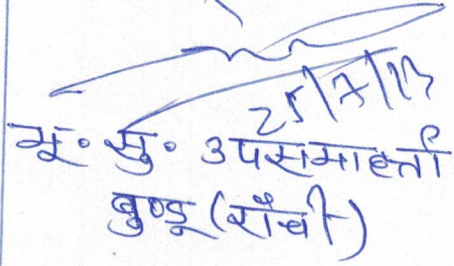 25/7/23
भू॰ सु॰ उपसमाहर्त्ता
बुण्डू (राँची)